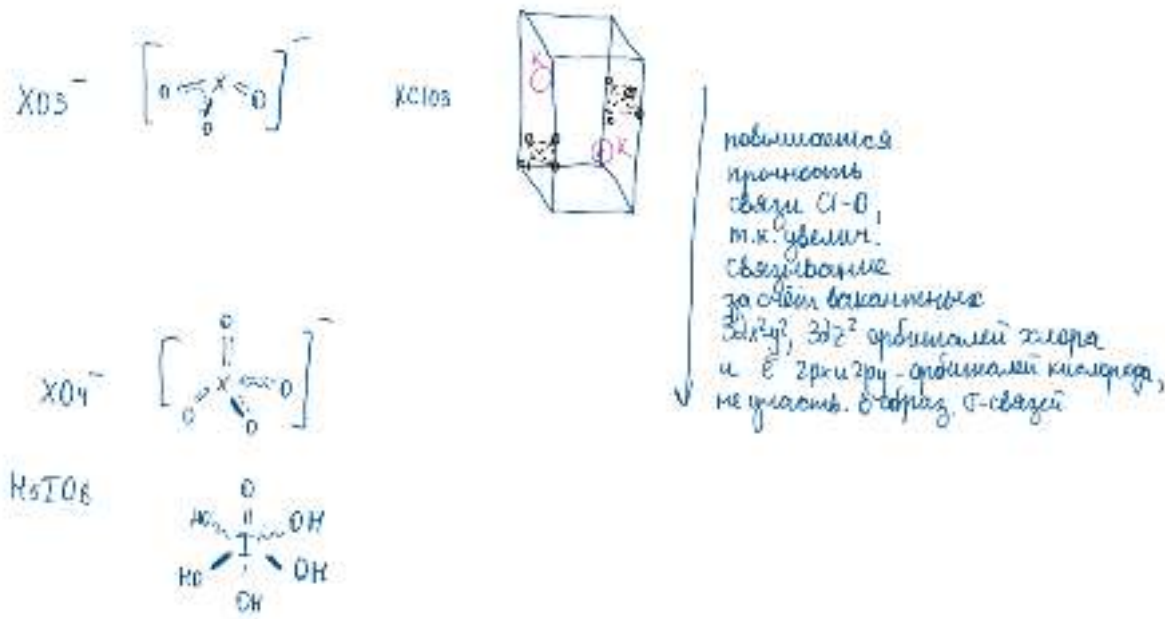 XO3⁻
[O X O O]⁻
KClO3
K
K
повышается
прочность
связи Cl-O,
т.к. увелич.
связывание
за счёт вакантных
3dx²y², 3dz² орбиталей хлора
и ē 2px и 2py-орбиталей кислорода,
не участв. в образ. σ-связей
XO4⁻
[O X O O O]⁻
H5IO6
O
HO OH
I
HO OH
OH